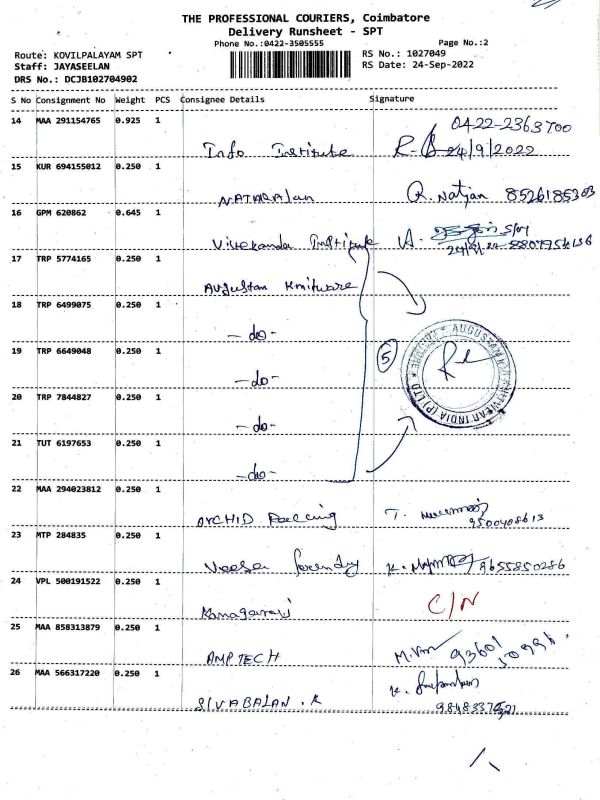 THE PROFESSIONAL COURIERS, Coimbatore
Delivery Runsheet - SPT
Phone No.:0422-3505555
Page No.:2
Route: KOVILPALAYAM SPT
RS No.: 1027049
Staff: JAYASEELAN
RS Date: 24-Sep-2022
DRS No.: DCJB102704902
S No Consignment No Weight PCS Consignee Details Signature
14 MAA 291154765 0.925 1
0422-2363700
Info Institute 24/9/2022
15 KUR 694155012 0.250 1
NATARAJan R. Natjan 8526185303
16 GPM 620862 0.645 1
Vivekanda Institute
17 TRP 5774165 0.250 1
Augustan Knitware
18 TRP 6499075 0.250 1
-do-
19 TRP 6649048 0.250 1
-do-
5
20 TRP 7844827 0.250 1
-do-
21 TUT 6197653 0.250 1
-do-
22 MAA 294023812 0.250 1
ORCHID Paccing T. 9500408613
23 MTP 284835 0.250 1
K. 9655850286
24 VPL 500191522 0.250 1
Kanagaraj C/N
25 MAA 858313879 0.250 1
AMPTECH M.
26 MAA 566317220 0.250 1
SIVABALAN . K K.